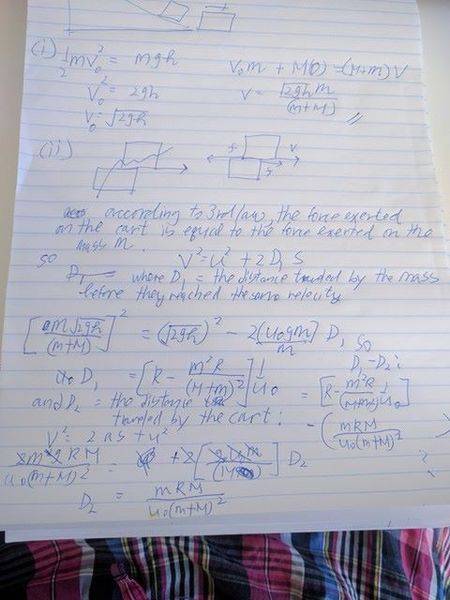 (i) ½mv₀² = mgh
v₀² = 2gh
v₀ = √2gh
v₀m + M(0) = (M+m)V
V = √2gh m / (m+M)
(ii)
f v
f
according to 3rd law, the force exerted
on the cart is equal to the force exerted on the
mass m.
so V² = u² + 2 D₁ S
D₁ where D₁ = the distance traveled by the mass
before they reached the same velocity
[m√2gh / (m+M)]² = (√2gh)² - 2[u₀gm / m] D₁ so
D₁ = [R - m²R / (M+m)²] 1/u₀
D₁ - D₂ :
= [R - m²R / (M+m)²] 1/u₀
- (mRM / u₀(m+M)²)
and D₂ = the distance
traveled by the cart:
V² = 2as + u²
D₂
D₂ = mRM / u₀(m+M)²